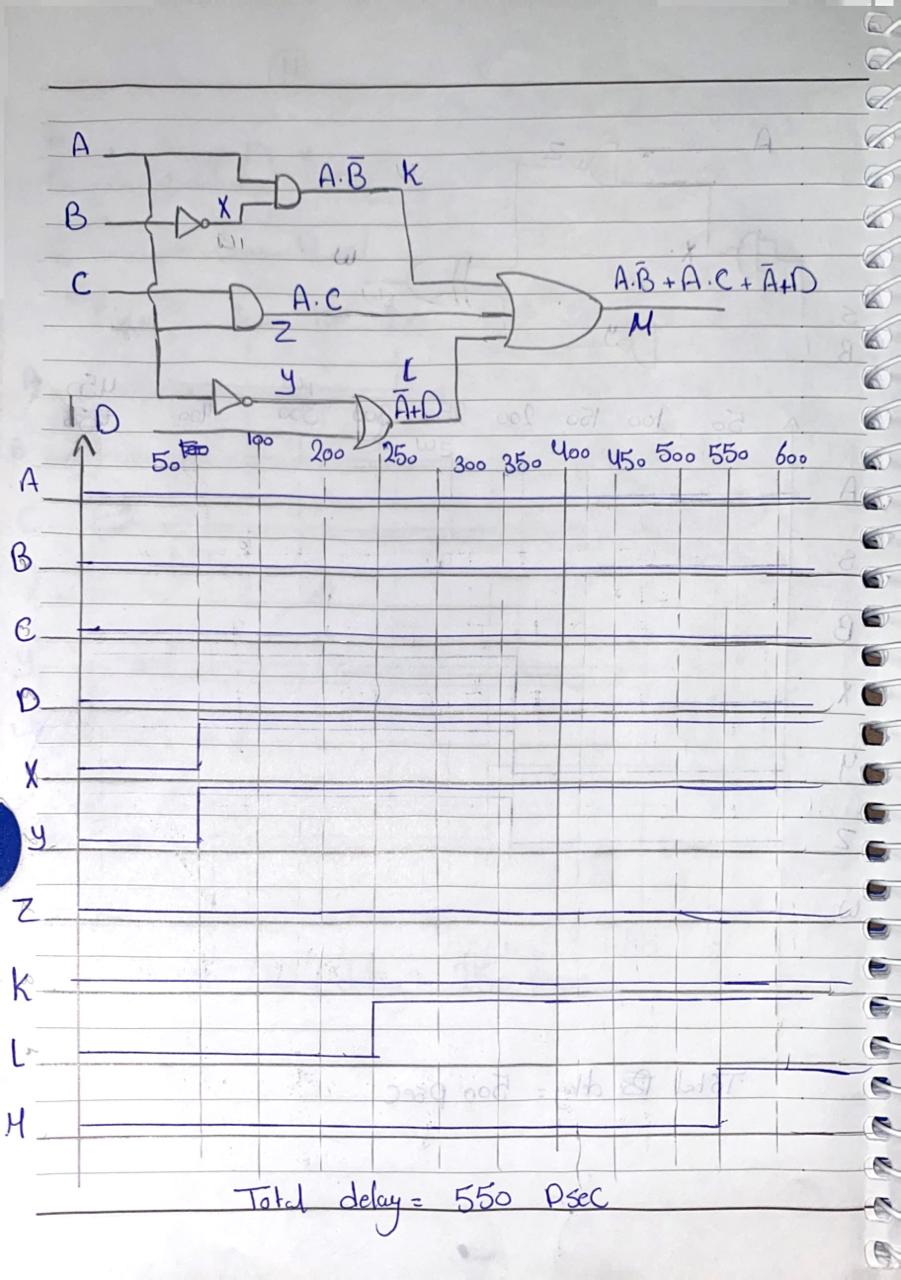 A
A.B̄ K
B X
C
A.C
Z
A.B̄ + A.C + Ā+D
M
y
L
Ā+D
D
50 100 200 250 300 350 400 450 500 550 600
A
B
C
D
X
y
Z
K
L
M
Total delay = 550 Psec